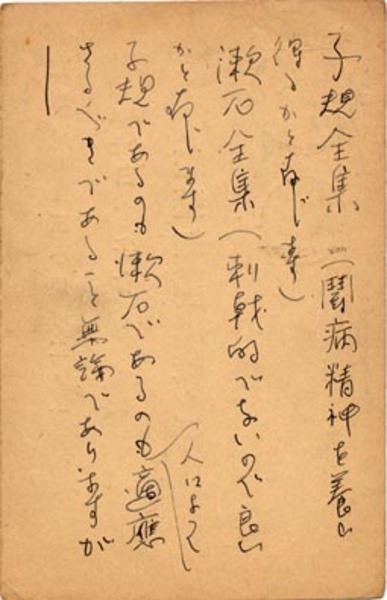 子規全集（闘病精神を養い
得るかと存じます）
漱石全集（刺戟的でないので良い
かと存じます）
子規であるのも漱石であるのも適應
（人によって）
さるべきであること無論でありますが